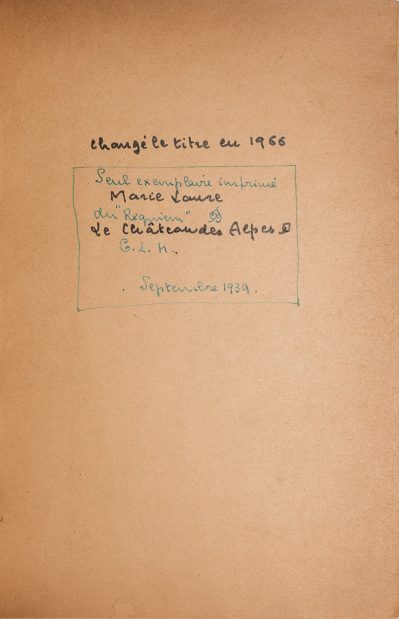 changé le titre en 1966
Seul exemplaire imprimé
Marie Laure
du "Requiem"
Le Château des Alpes
Septembre 1939.